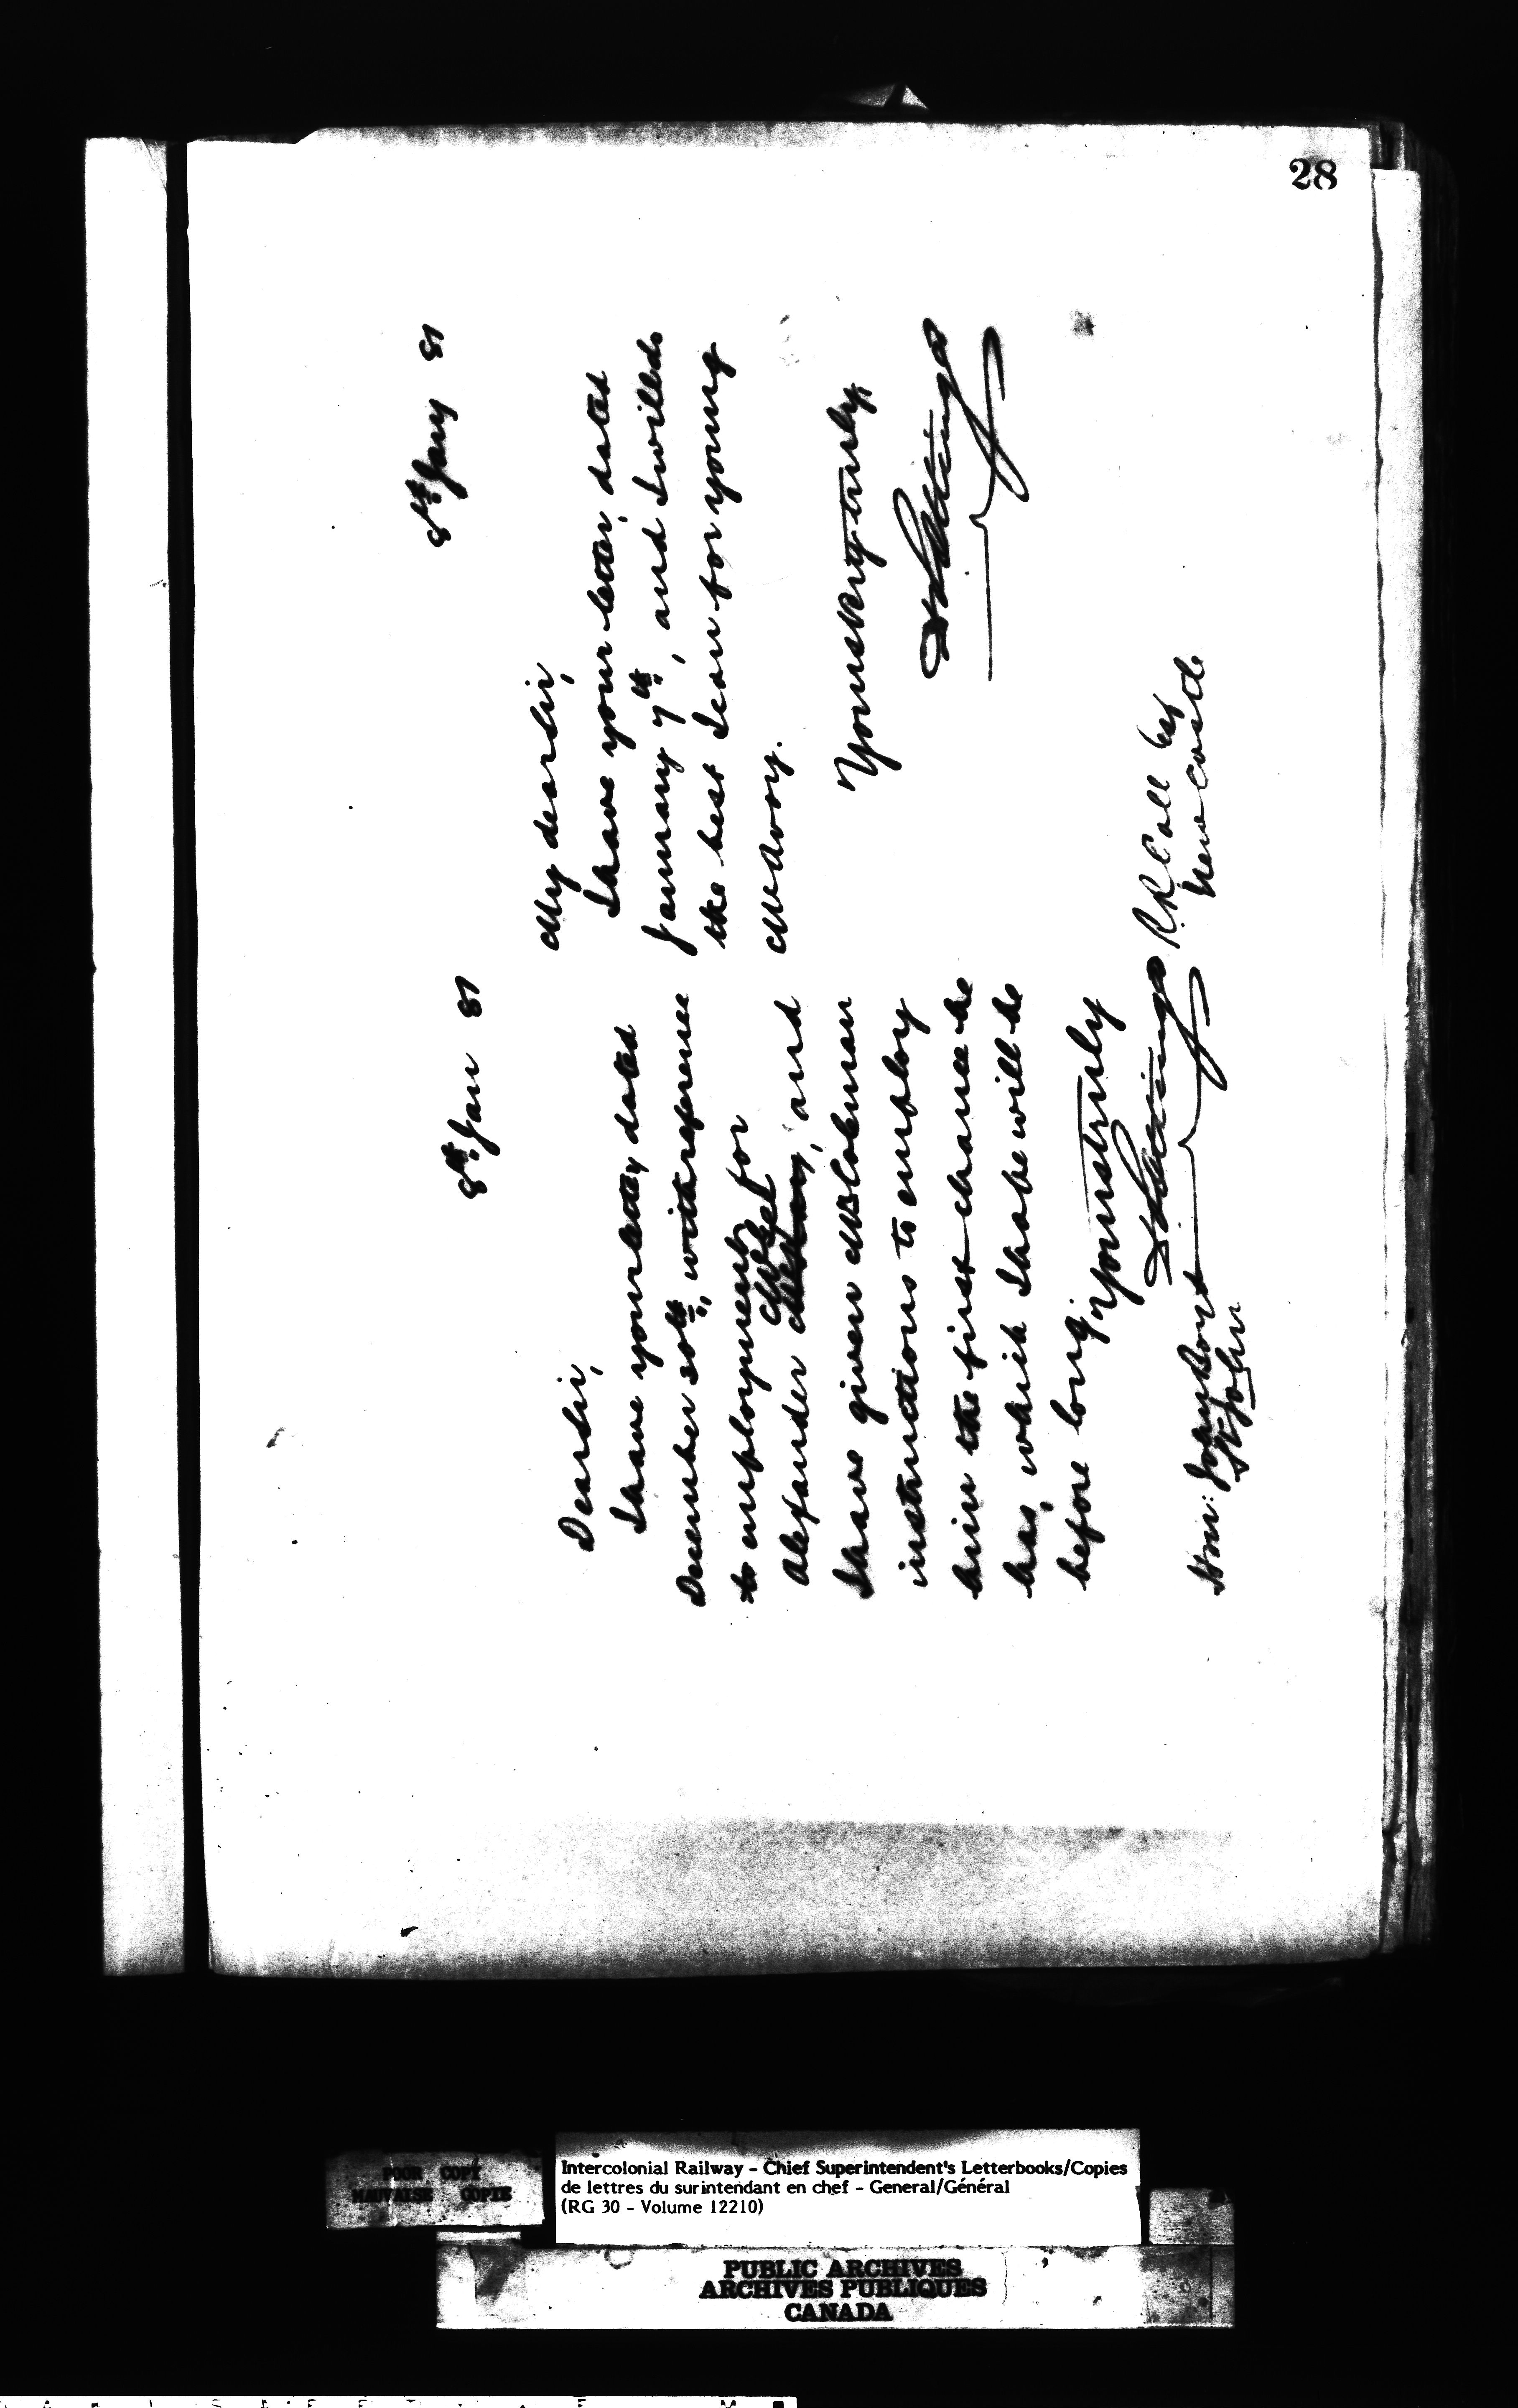 28
8th Jan 81
Dear Sir,
I have your letter dated
December 30th, with reference
to employment for
Alexander and
I have given McColeman
instructions to employ
him the first chance he
has, which I hope will be
before long.
Yours truly
D Pottinger
Hon: John Boyd
St John
8th Jany 81
My dear Sir,
I have your letter, dated
January 7th, and I will do
the best I can for young
McAvoy.
Yours very truly,
D Pottinger
R. R. Call Esq
Newcastle
POOR COPY
MAUVAISE COPIE
Intercolonial Railway - Chief Superintendent's Letterbooks/Copies
de lettres du surintendant en chef - General/Général
(RG 30 - Volume 12210)
PUBLIC ARCHIVES
ARCHIVES PUBLIQUES
CANADA